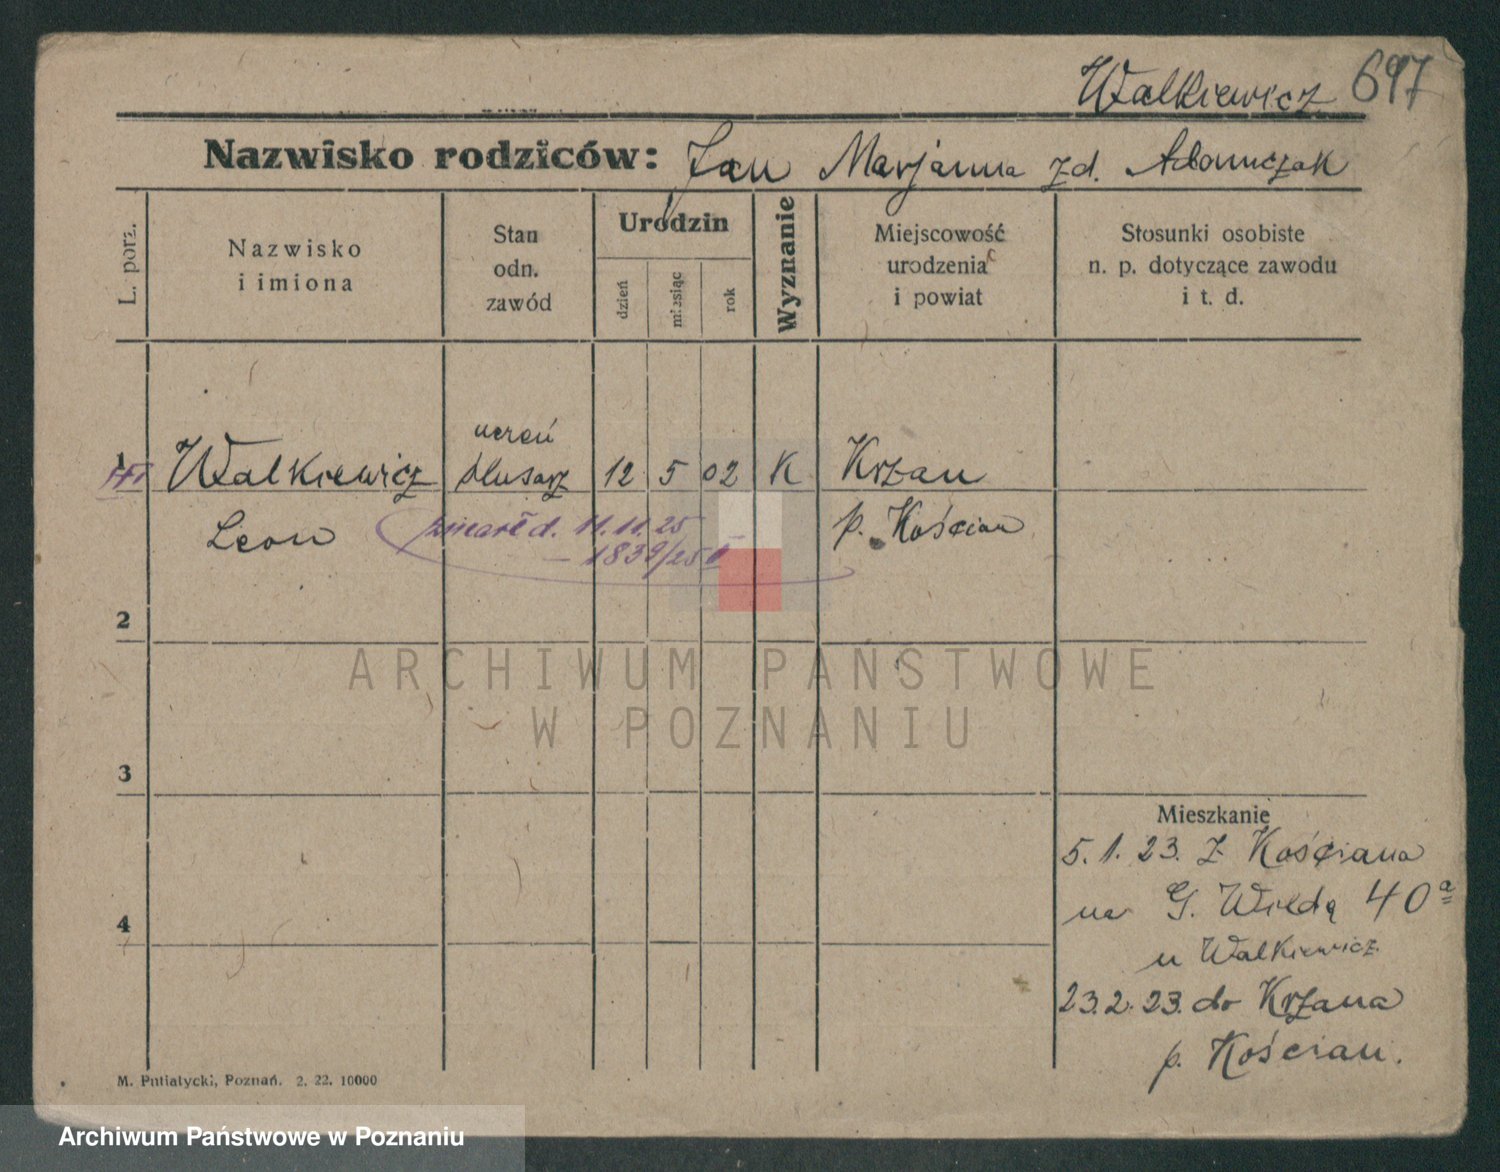 Walkiewicz 697
Nazwisko rodziców: Jan Marjanna zd. Adamczak
L. porz.
Nazwisko
i imiona
Stan
odn.
zawód
Urodzin
dzień
miesiąc
rok
Wyznanie
Miejscowość
urodzenia
i powiat
Stosunki osobiste
n. p. dotyczące zawodu
i t. d.
1
uczeń
Walkiewicz ślusarz 12 5 02 K Krzan
Leon zmarł d. 11.11.25 p. Kościan
– 1839/25
2
ARCHIWUM PAŃSTWOWE
W POZNANIU
3
Mieszkanie
5. 1. 23. z Kościana
na G. Wildą 40a
4
u Walkiewicz.
23.2.23. do Krzana
p. Kościan.
M. Putiatycki, Poznań. 2. 22. 10000
Archiwum Państwowe w Poznaniu